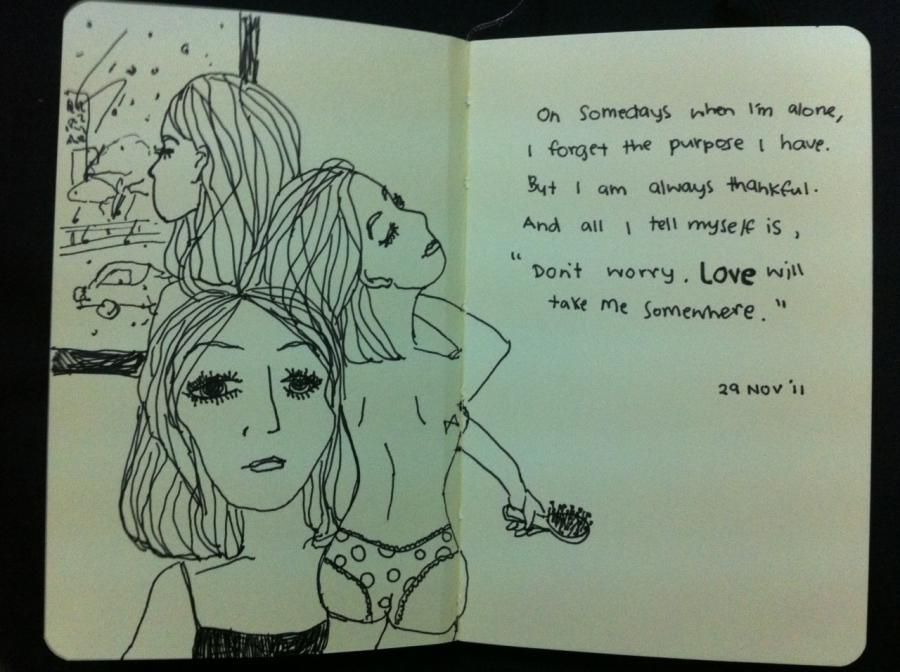 On Somedays when I'm alone,
I forget the purpose I have.
But I am always thankful.
And all I tell myself is,
"Don't worry. Love will
take me somewhere."
29 NOV '11